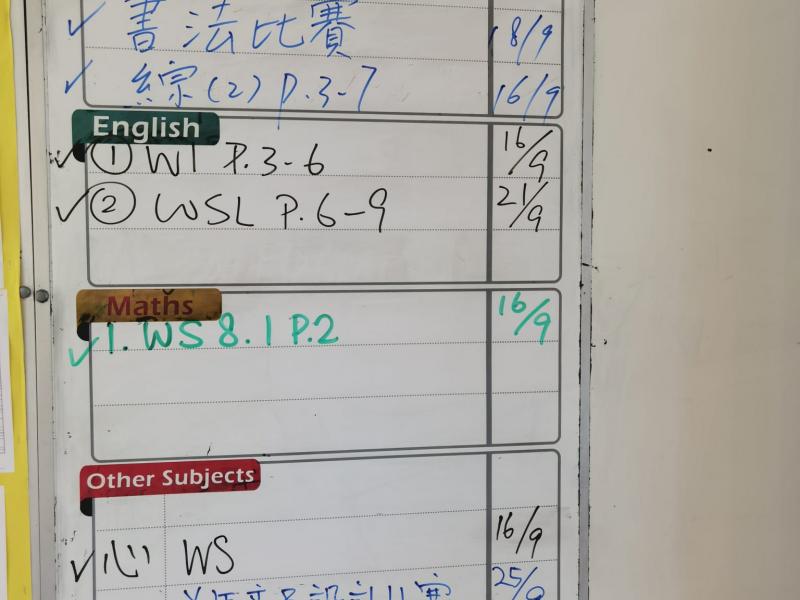 ✓ 書法比賽 18/9
✓ 綜(2) P.3-7 16/9
English
✓ ① WT P.3-6 16/9
✓ ② WSL P.6-9 21/9
Maths
✓ 1. WS 8.1 P.2 16/9
Other Subjects
✓ 心 WS 16/9
設計比賽 25/9